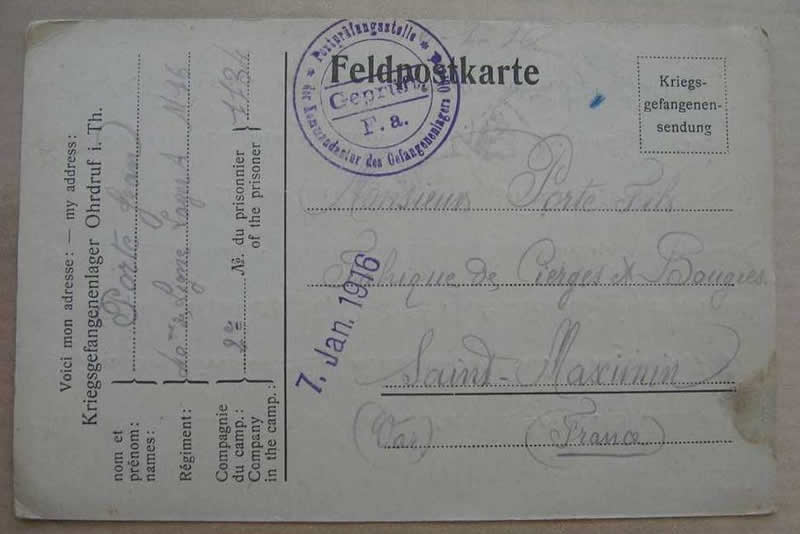 Feldpostkarte
Kriegs-
gefangenen-
sendung
Postprüfungsstelle
der Kommandantur des Gefangenenlagers
Geprüft
F. a.
Monsieur Porte Fils
Fabrique de Cierges & Bougies
Saint-Maximin
(Var) (France)
7. Jan. 1916
Voici mon adresse: — my address:
Kriegsgefangenenlager Ohrdruf i. Th.
nom et
prénom:
names:
Porte Jean
Régiment:
de Ligne
Compagnie
du camp.:
Company
in the camp.:
2e
№. du prisonnier
of the prisoner